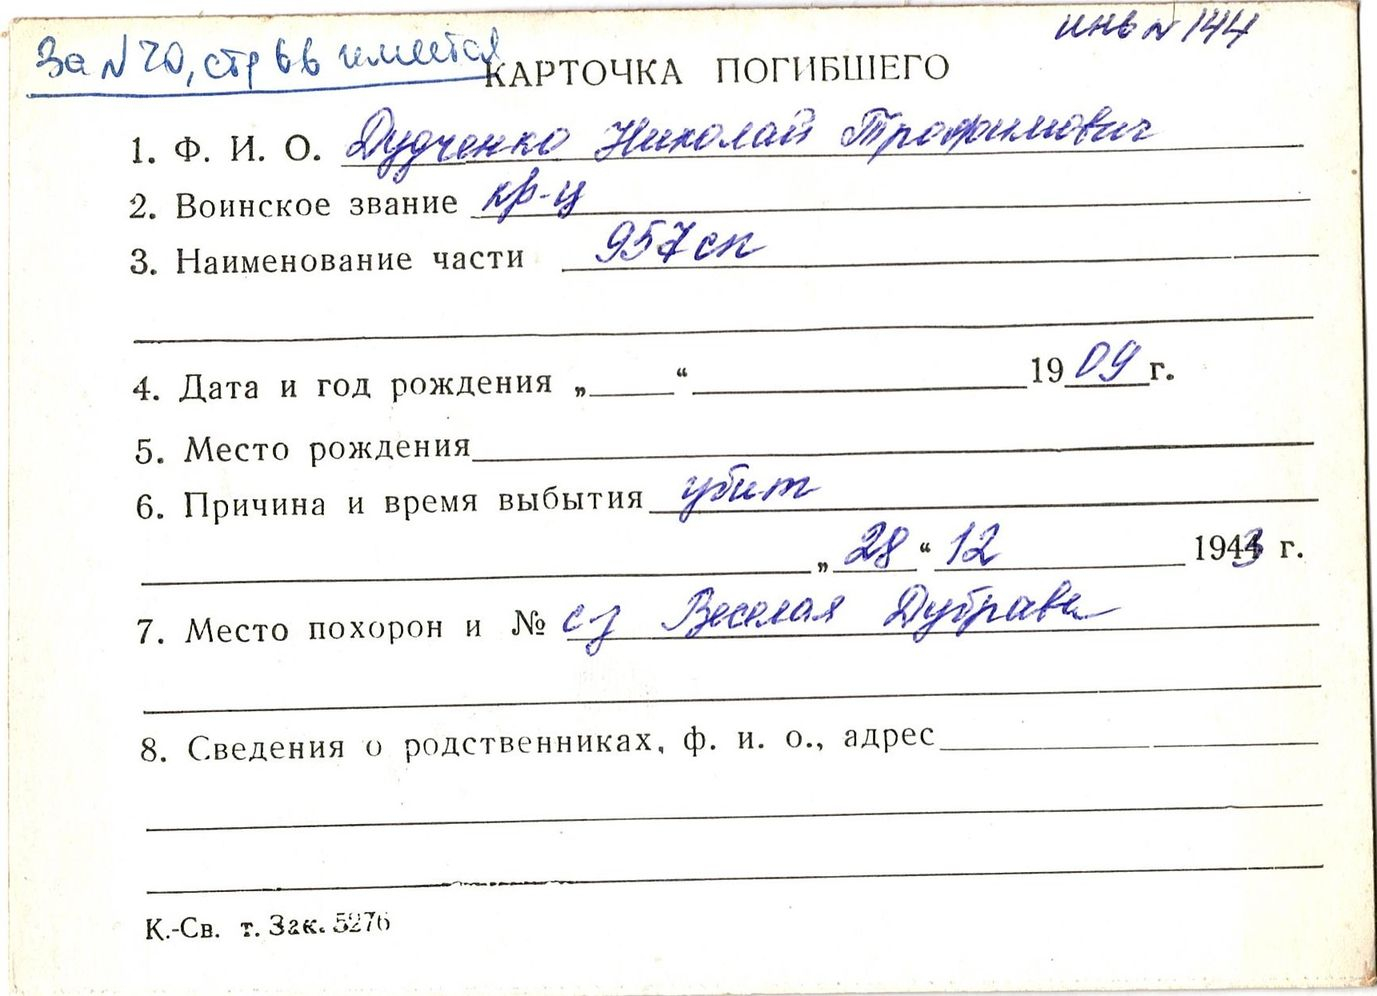 За № 70, стр 6 в имеется
инв № 144
КАРТОЧКА ПОГИБШЕГО
1. Ф. И. О. Дудченко Николай Трофимович
2. Воинское звание кр-ц
3. Наименование части 957 сп
4. Дата и год рождения „ “ 1909 г.
5. Место рождения
6. Причина и время выбытия убит
„ 28 “ 12 1943 г.
7. Место похорон и № Веселая Дубрава
8. Сведения о родственниках, ф. и. о., адрес
К.-Св. т. Зак. 5276